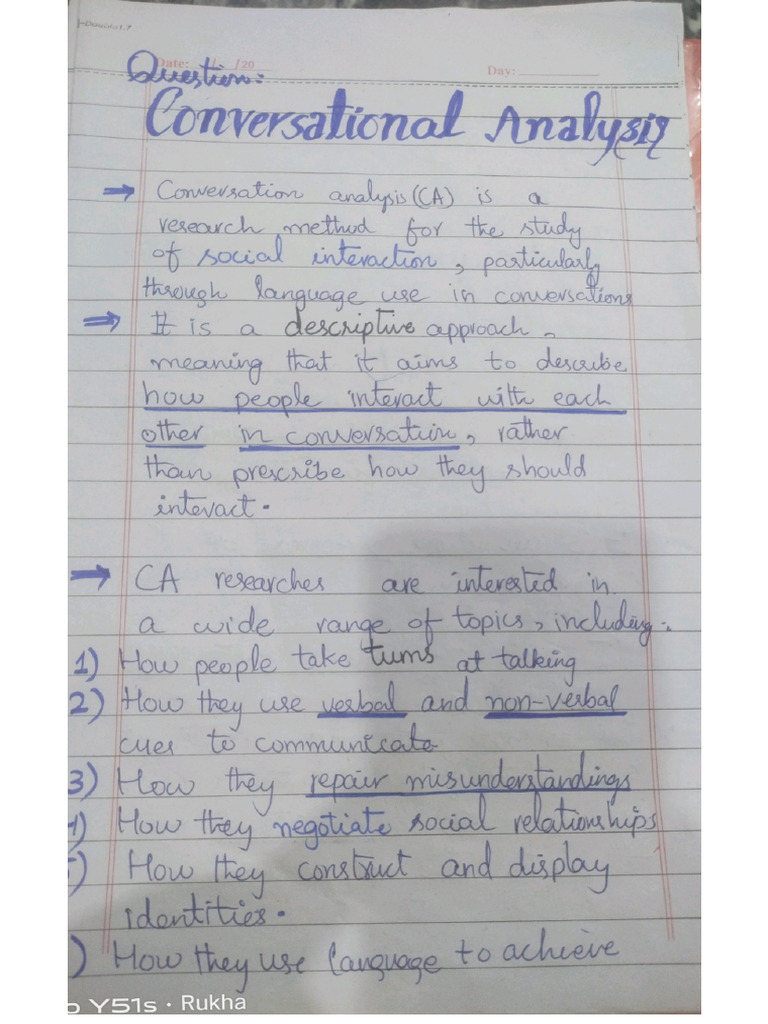 Date: / /20
Day:
Question:
Conversational Analysis
→ Conversation analysis (CA) is a
research method for the study
of social interaction, particularly
through language use in conversations
⇒ It is a descriptive approach,
meaning that it aims to describe
how people interact with each
other in conversation, rather
than prescribe how they should
interact.
→ CA researches are interested in
a wide range of topics, including:
1) How people take turns at talking
2) How they use verbal and non-verbal
cues to communicate
3) How they repair misunderstandings
) How they negotiate social relationships
) How they construct and display
identities.
) How they use language to achieve
Y51s · Rukha